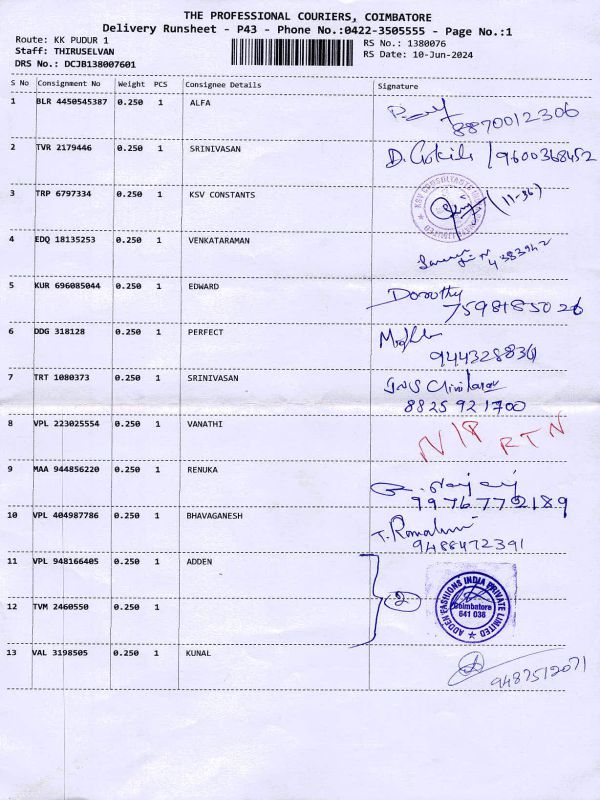 THE PROFESSIONAL COURIERS, COIMBATORE
Delivery Runsheet - P43 - Phone No.:0422-3505555 - Page No.:1
Route: KK PUDUR 1
RS No.: 1380076
Staff: THIRUSELVAN
RS Date: 10-Jun-2024
DRS No.: DCJB138007601
S No Consignment No Weight PCS Consignee Details Signature
1 BLR 4450545387 0.250 1 ALFA
8870012306
2 TVR 2179446 0.250 1 SRINIVASAN D. Gokila /9600368452
3 TRP 6797334 0.250 1 KSV CONSTANTS (11-36)
4 EDQ 18135253 0.250 1 VENKATARAMAN
5 KUR 696085044 0.250 1 EDWARD Dorothy
7598185026
6 DDG 318128 0.250 1 PERFECT
7 TRT 1080373 0.250 1 SRINIVASAN
8825921700
8 VPL 223025554 0.250 1 VANATHI N/P RTN
9 MAA 944856220 0.250 1 RENUKA
9976772189
10 VPL 404987786 0.250 1 BHAVAGANESH
9488472391
11 VPL 948166405 0.250 1 ADDEN
12 TVM 2460550 0.250 1 2
ADDEN FASHIONS INDIA PRIVATE LIMITED
Coimbatore
641 038
13 VAL 3198505 0.250 1 KUNAL
9487512071